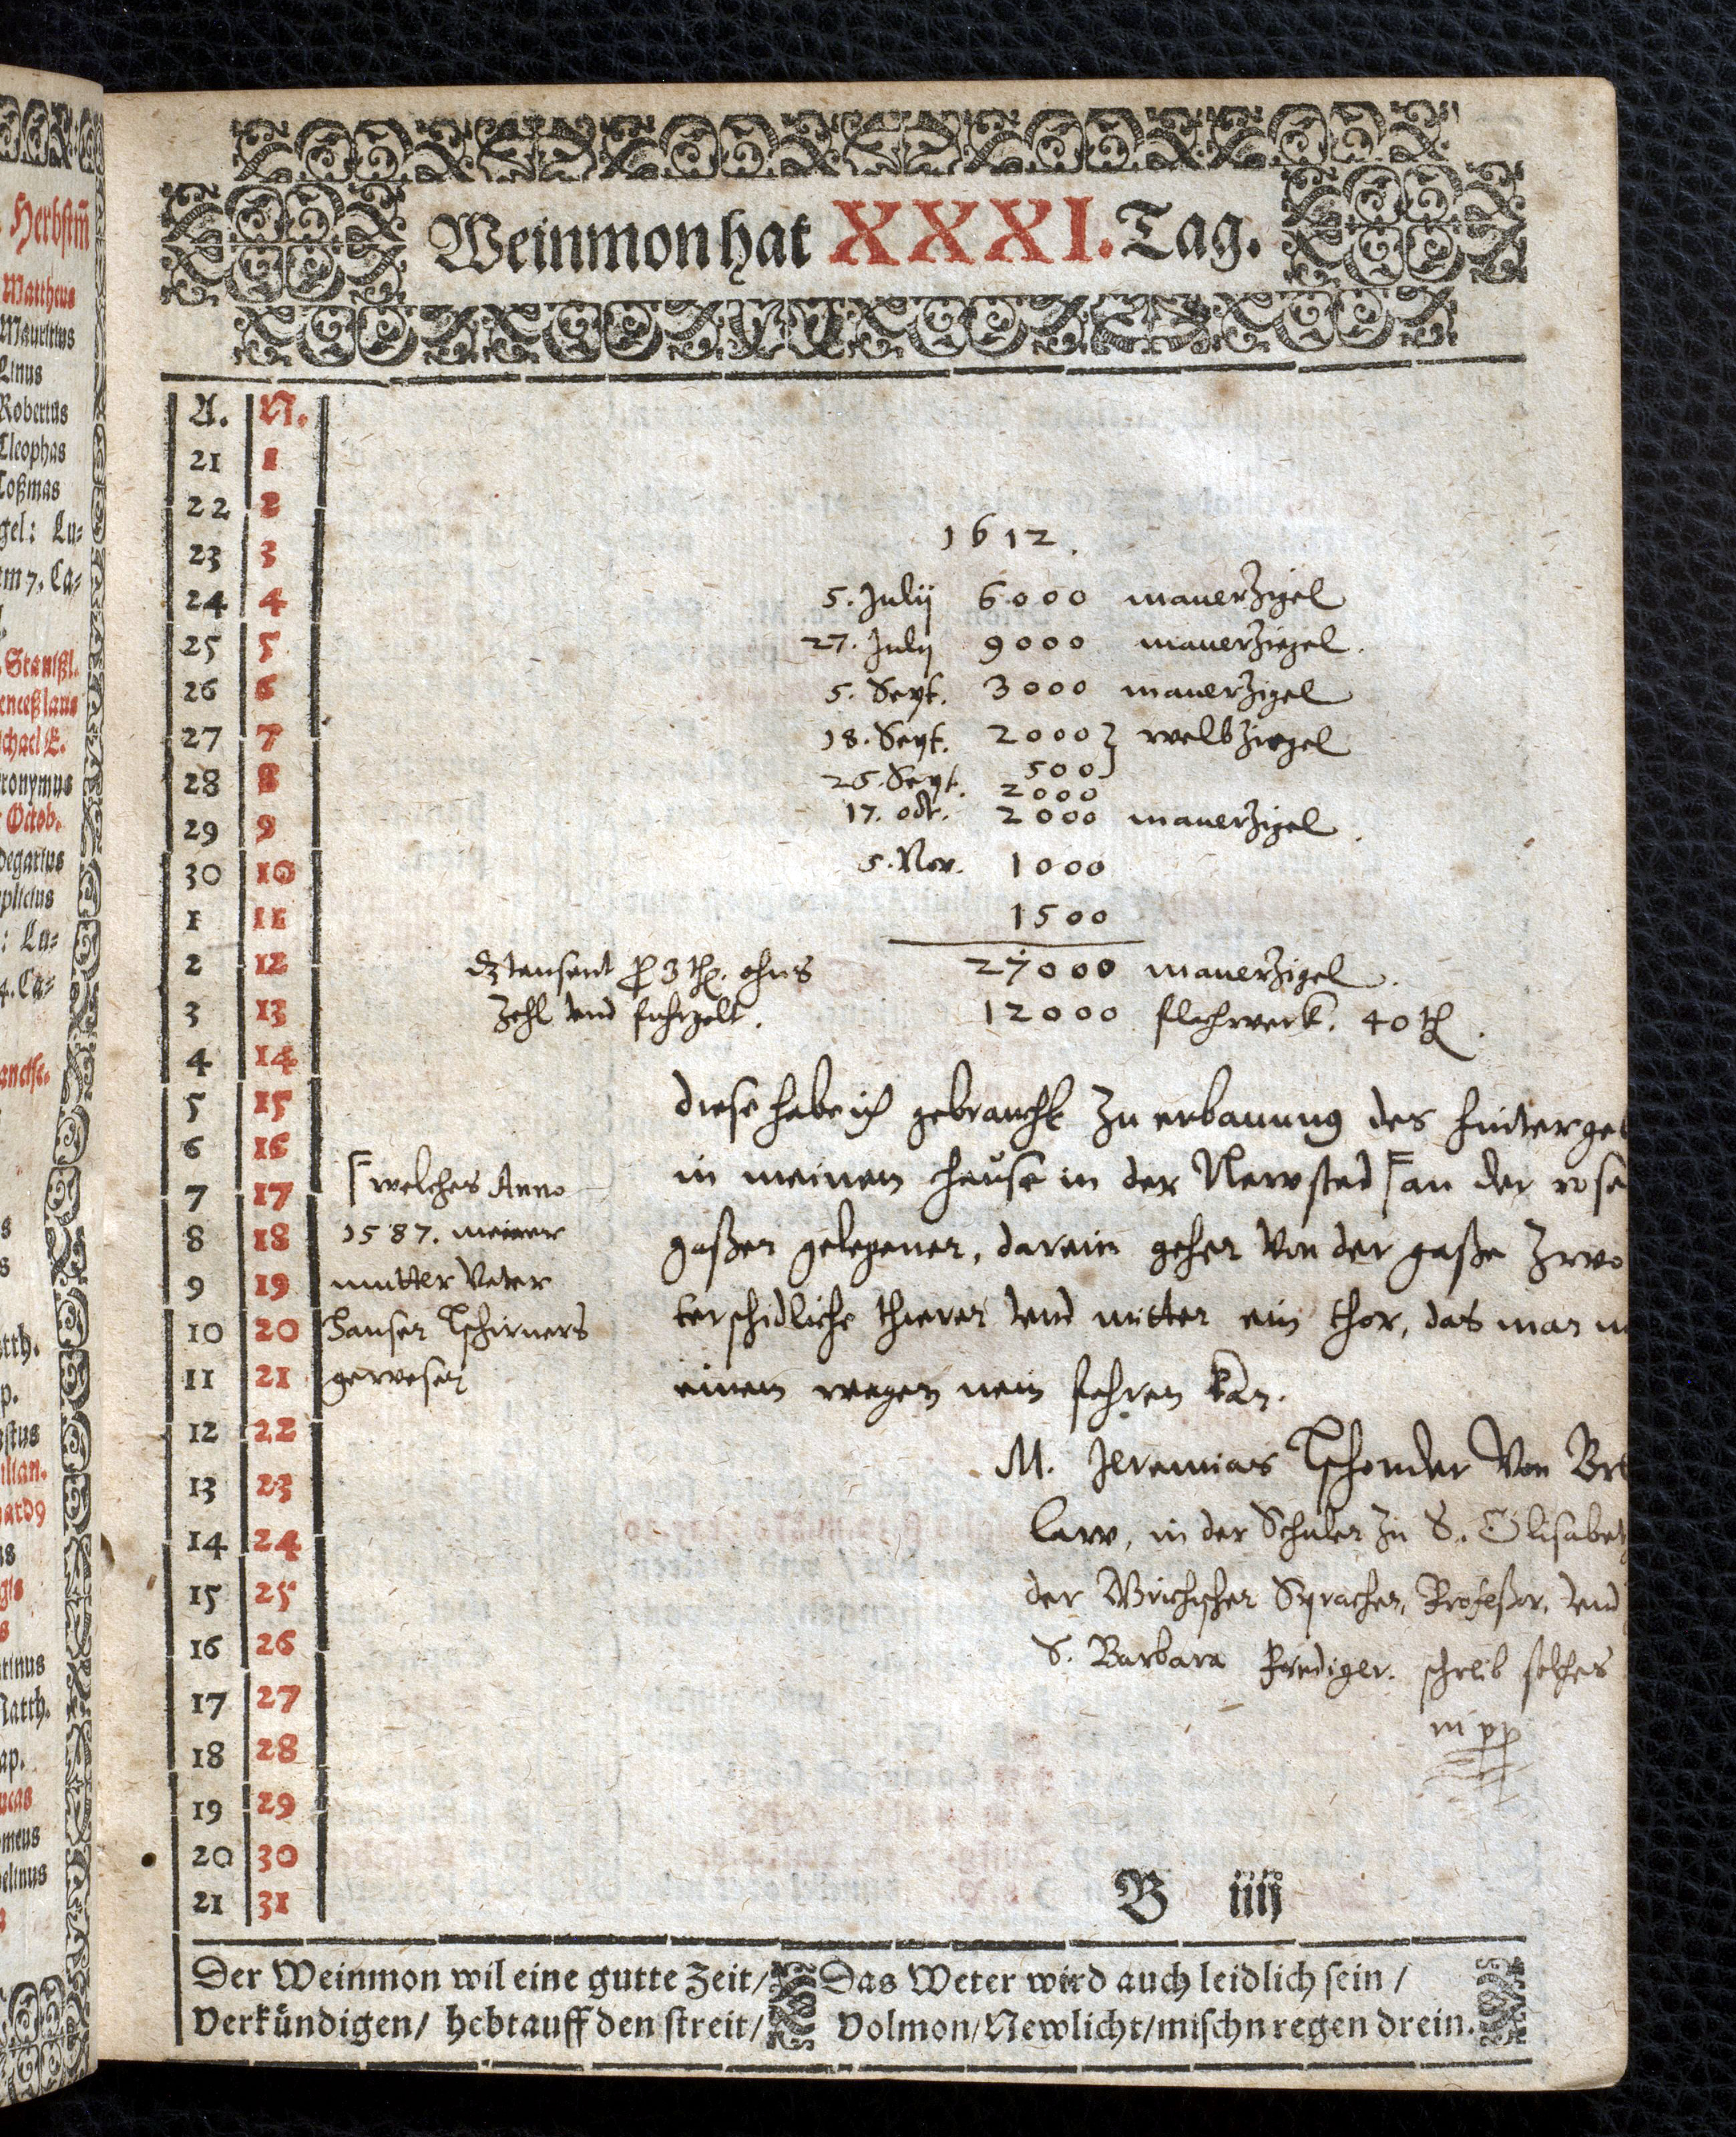 Herbstm̃
Mattheus
Mauritius
Linus
Robertus
Cleophas
Coßmas
gel: Lu-
em 7. Ca-
Stanißl.
enceßlaus
chael E.
ronymus
Octob.
degarius
plicius
: Lu-
4. Ca-
ancisc.
Weinmon hat XXXI. Tag.
A. N.
21 1
22 2
23 3
24 4
25 5
26 6
27 7
28 8
29 9
30 10
1 11
2 12
3 13
4 14
5 15
6 16
7 17
8 18
9 19
10 20
11 21
12 22
13 23
14 24
15 25
16 26
17 27
18 28
19 29
20 30
21 31
1612.
5. Julij 6000 mauerzigel
27. July 9000 mauerziegel.
5. Sept. 3000 mauerzigel
18. Sept. 2000 welbziegel
500
26. Sept. 2000
17. oct. 2000 mauerzigel.
5. Nov. 1000
1500
27000 mauerzigel.
dz tausent ꝑ 3 th. ohns
zehl vnd fuhrgelt.
12000 flachwerk. 40 th.
diese habe ich gebraucht zu erbauung des hinterge
in meinem hause in der Newstad an der rose
gaßen gelegener, darein gehen von der gaße zwo
terschidliche thieren vnd mitten ein thor, das man m
einem wagen nein fahren kan.
welches Anno
1587. meiner
mutter Vater
Hansen Tschirners
gewesen
M. Jeremias Tschonder von Bre
law, in der Schulen zu S. Elisabeth
der Grichischen Sprachen, Profeßor, vnd
S. Barbara Prediger. schreib solches
mpp
B iiij
Der Weinmon wil eine gutte Zeit/
Verkündigen/ hebt auff den streit/
Das Weter wird auch leidlich sein/
Volmon/Newlicht/mischn regen drein.